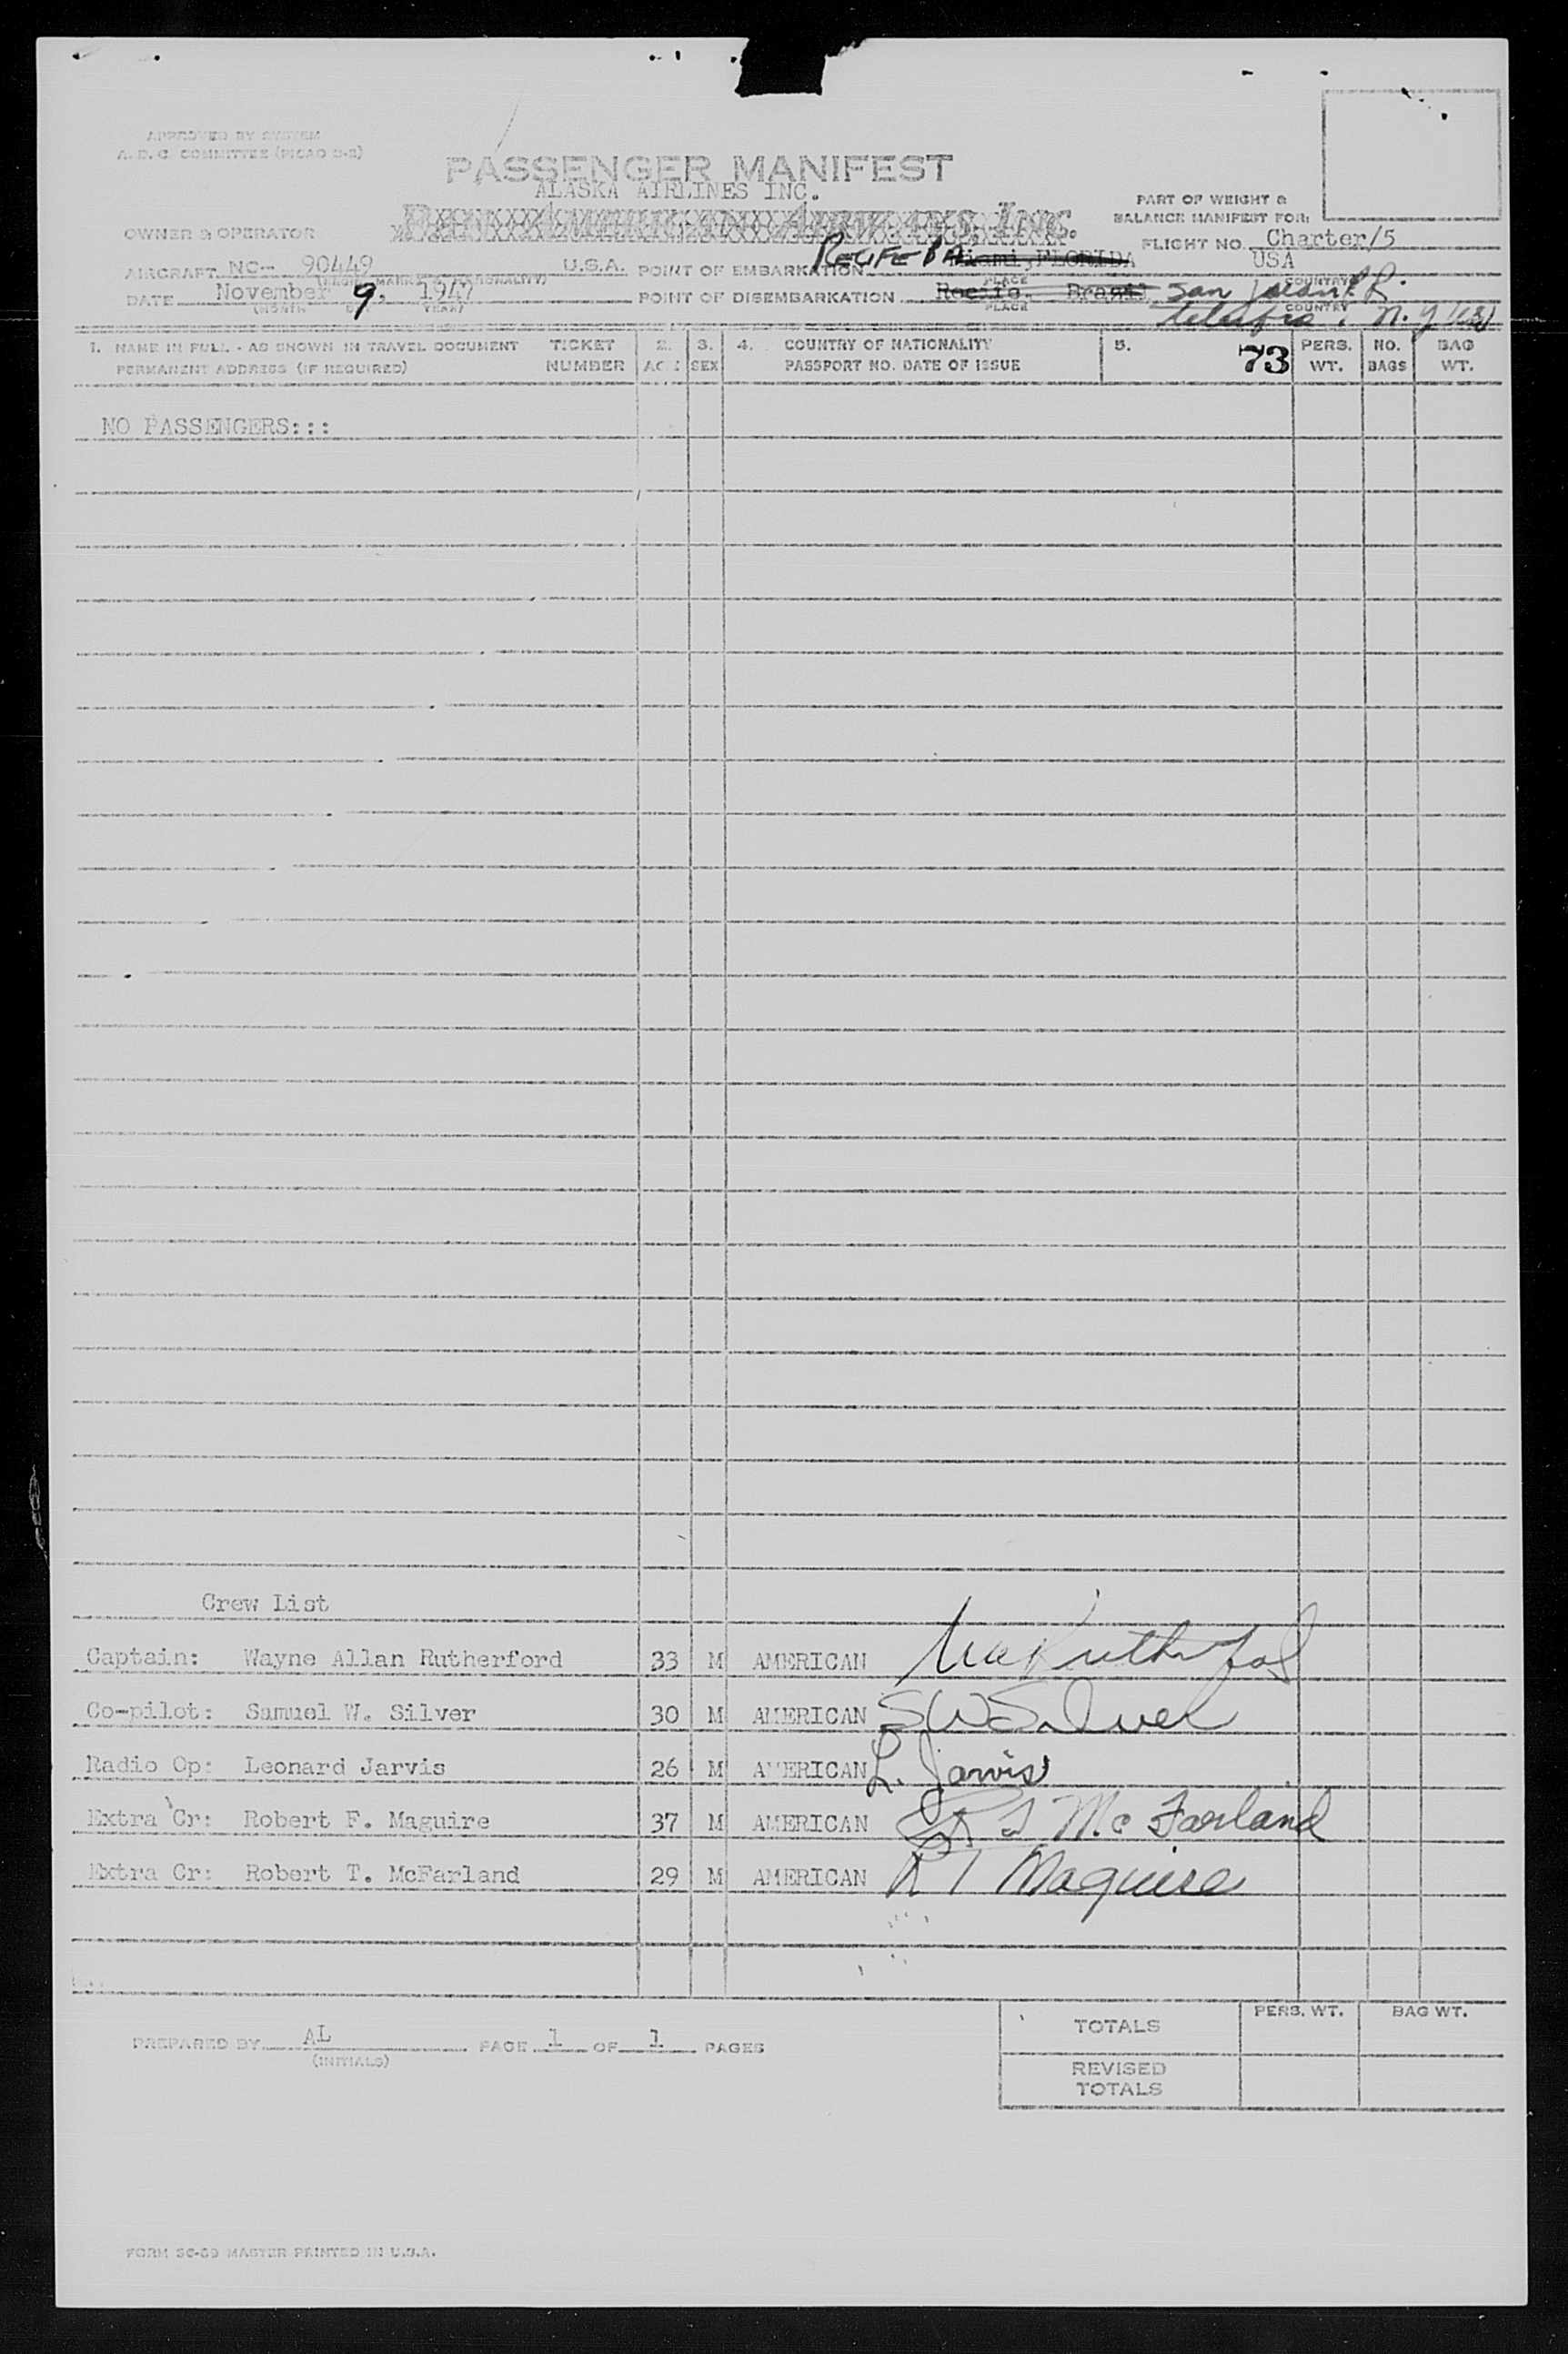 APPROVED BY SYSTEM
A. D. C. COMMITTEE (PICAO
PASSENGER MANIFEST
ALASKA AIRLINES INC.
PART OF WEIGHT &
BALANCE MANIFEST FOR:
OWNER & OPERATOR
FLIGHT NO. Charter/5
AIRCRAFT NC- 90449 U.S.A. POINT OF EMBARKATION RECIFE Miami, FLORIDA USA
NATIONALITY) PLACE COUNTRY
DATE November 9, 1947 POINT OF DISEMBARKATION Recife, Brazil San Juan P.R.
(MONTH DAY YEAR) PLACE COUNTRY
N.Y.
1. NAME IN FULL - AS SHOWN IN TRAVEL DOCUMENT TICKET 2. 3. 4. COUNTRY OF NATIONALITY 5. 73 PERS. NO. BAG
PERMANENT ADDRESS (IF REQUIRED) NUMBER AGE SEX PASSPORT NO. DATE OF ISSUE WT. BAGS WT.
NO PASSENGERS:::
Crew List
Captain: Wayne Allan Rutherford 33 M AMERICAN
Co-pilot: Samuel W. Silver 30 M AMERICAN S W Silver
Radio Op: Leonard Jarvis 26 M AMERICAN L. Jarvis
Extra Cr: Robert F. Maguire 37 M AMERICAN R T McFarland
Extra Cr: Robert T. McFarland 29 M AMERICAN Maguire
PERS. WT. BAG WT.
TOTALS
PREPARED BY AL PAGE 1 OF 1 PAGES
(INITIALS)
REVISED
TOTALS
MASTER PRINTED IN U.S.A.